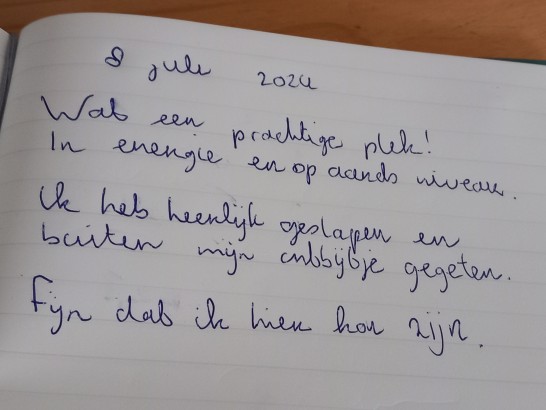 8 juli 2024
Wat een prachtige plek!
In energie en op aards niveau.
Ik heb heerlijk geslapen en
buiten mijn ontbijtje gegeten.
Fijn dat ik hier kon zijn.